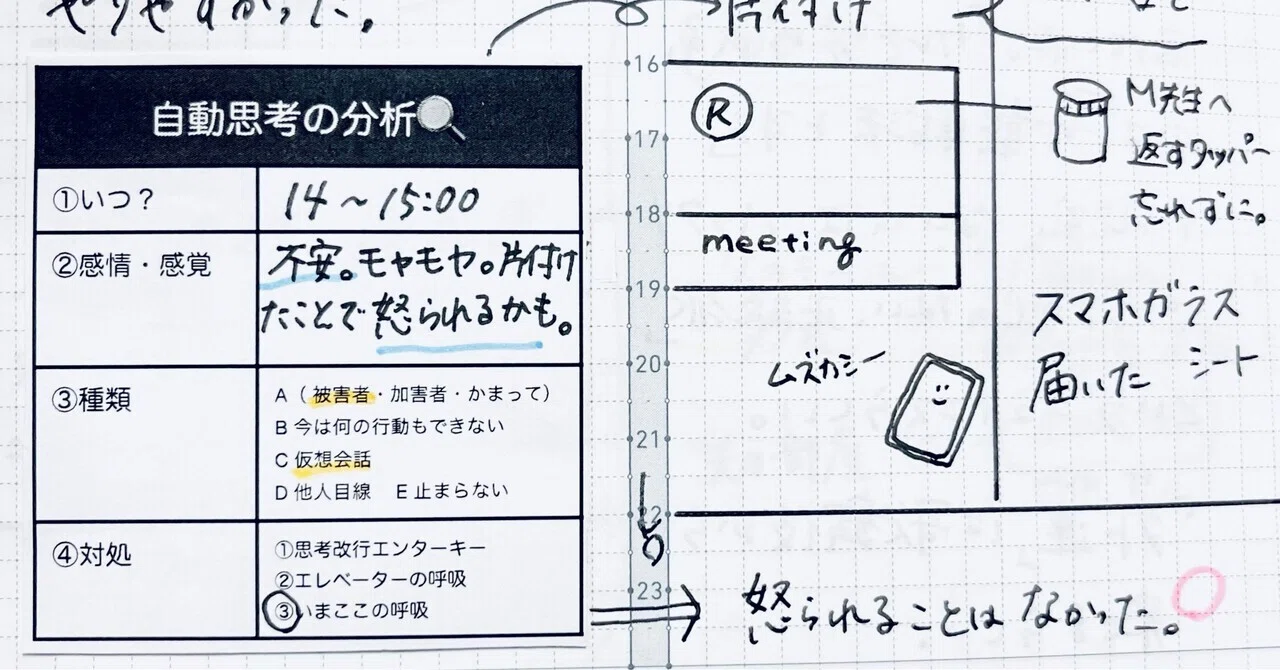 やりやすかった。
片付け
自動思考の分析
①いつ?
14～15:00
②感情・感覚
不安。モヤモヤ。片付け
たことで怒られるかも。
③種類
A（被害者・加害者・かまって）
B 今は何の行動もできない
C 仮想会話
D 他人目線　E 止まらない
④対処
①思考改行エンターキー
②エレベーターの呼吸
③いまここの呼吸
16
17
18
19
20
21
22
23
R
meeting
ムズカシー
M先生へ
返すタッパー
忘れずに。
スマホガラス
シート
届いた
怒られることはなかった。